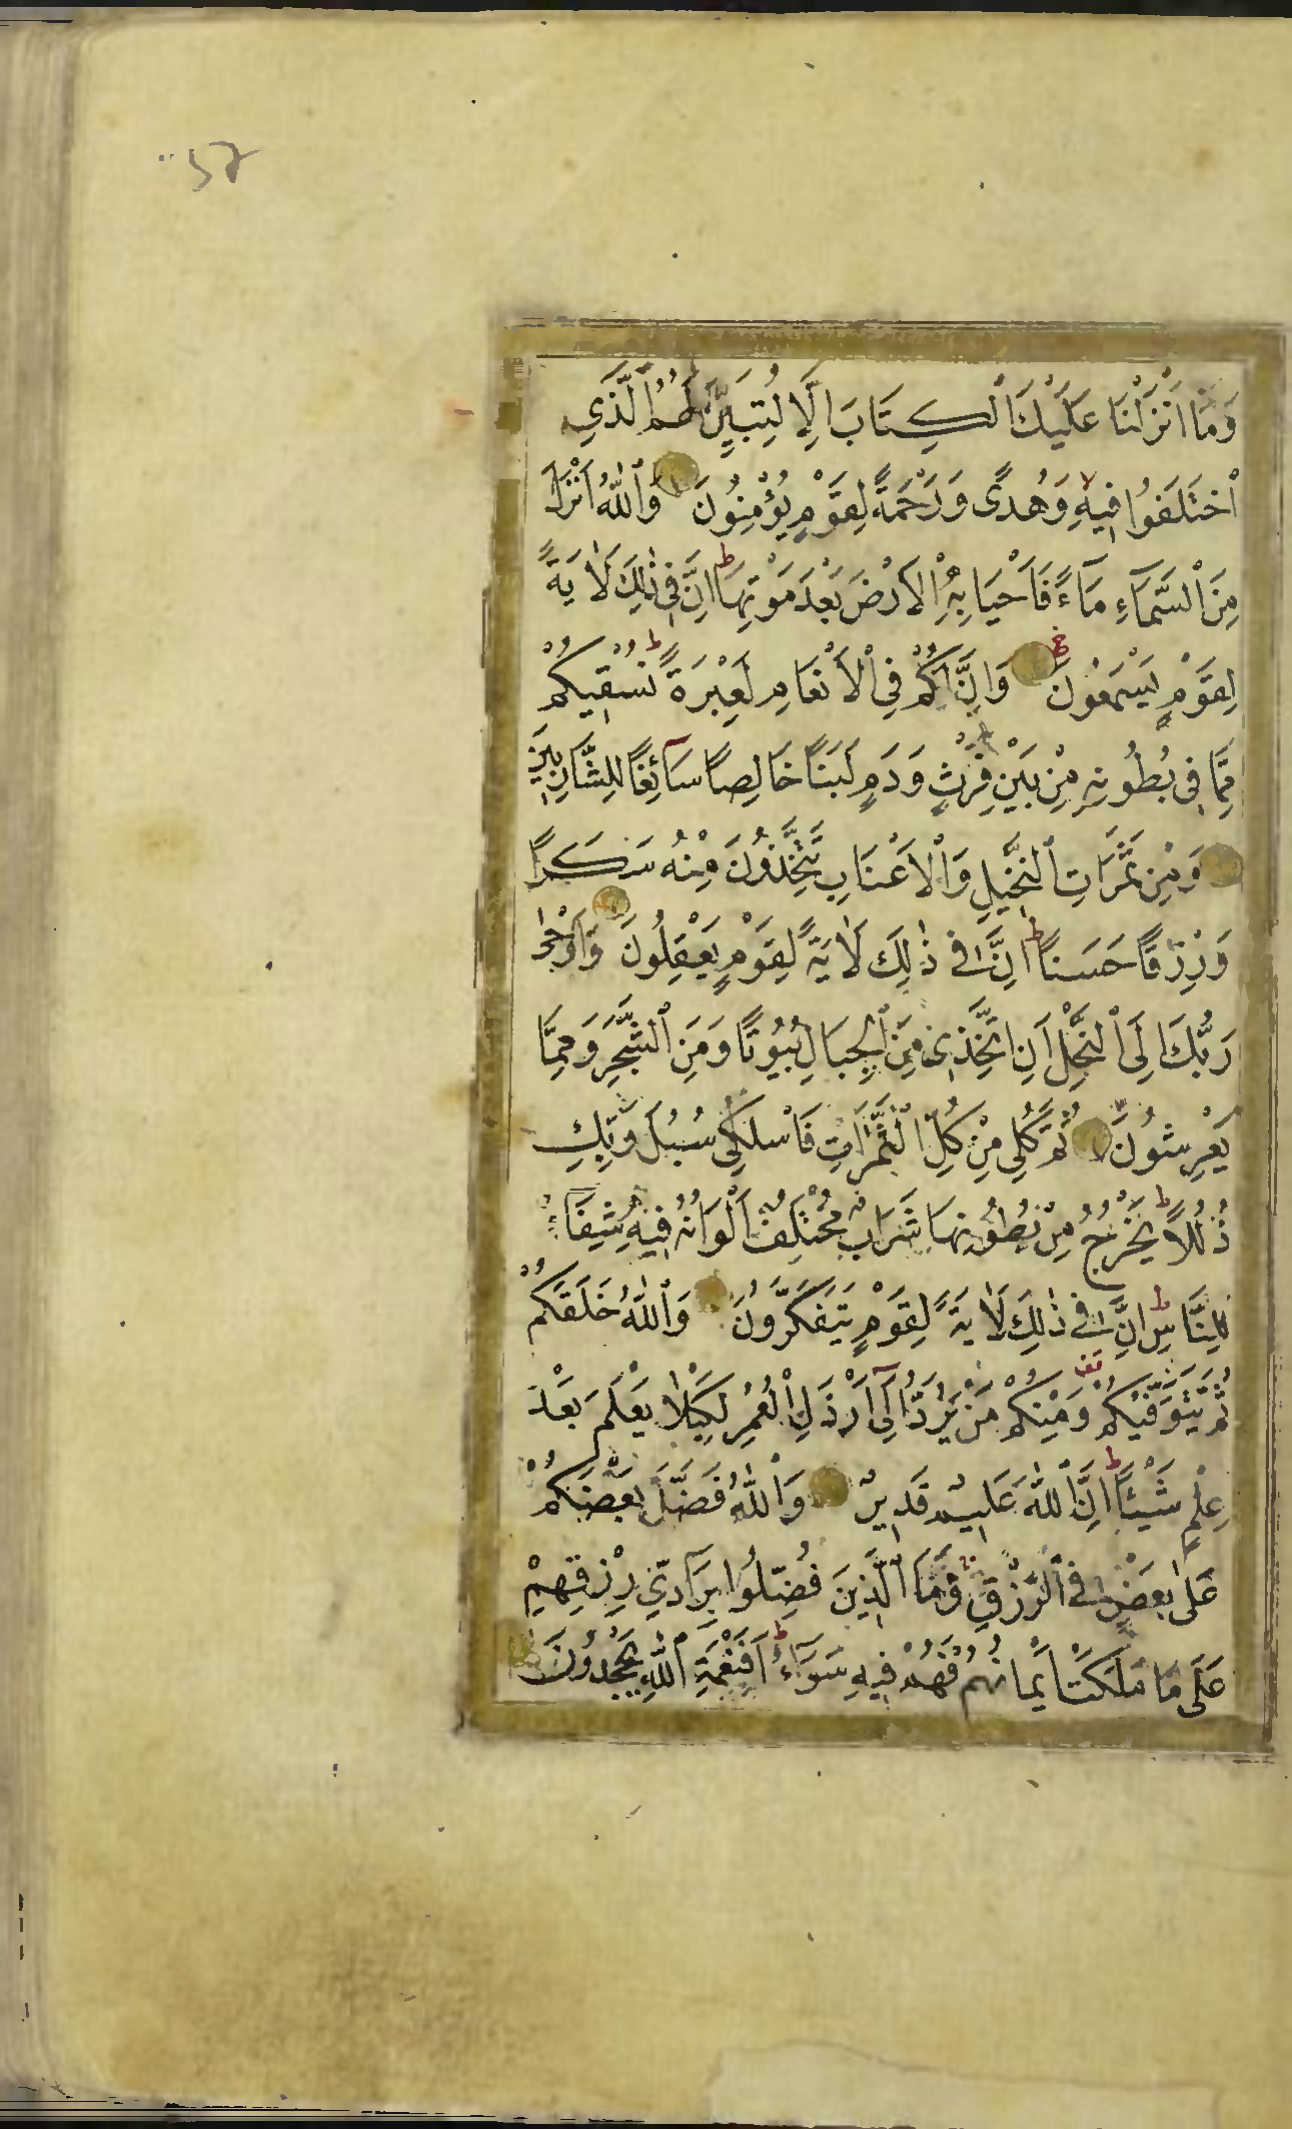 وَمَٓا اَنْزَلْنَا عَلَيْكَ الْكِتَابَ اِلَّا لِتُبَيِّنَ لَهُمُ الَّذِي
اخْتَلَفُوا فِيهِ وَهُدًى وَرَحْمَةً لِقَوْمٍ يُؤْمِنُونَ وَاللّٰهُ اَنْزَلَ
مِنَ السَّمَٓاءِ مَٓاءً فَاَحْيَا بِهِ الْاَرْضَ بَعْدَ مَوْتِهَا ط اِنَّ فِي ذٰلِكَ لَاٰيَةً
لِقَوْمٍ يَسْمَعُونَ وَاِنَّ لَكُمْ فِي الْاَنْعَامِ لَعِبْرَةً ط نُسْقِيكُمْ
مِمَّا فِي بُطُونِهِ مِنْ بَيْنِ فَرْثٍ وَدَمٍ لَبَنًا خَالِصًا سَٓائِغًا لِلشَّارِبِينَ
وَمِنْ ثَمَرَاتِ النَّخِيلِ وَالْاَعْنَابِ تَتَّخِذُونَ مِنْهُ سَكَرًا
وَرِزْقًا حَسَنًا ط اِنَّ فِي ذٰلِكَ لَاٰيَةً لِقَوْمٍ يَعْقِلُونَ وَاَوْحٰى
رَبُّكَ اِلَى النَّحْلِ اَنِ اتَّخِذِي مِنَ الْجِبَالِ بُيُوتًا وَمِنَ الشَّجَرِ وَمِمَّا
يَعْرِشُونَ لا ثُمَّ كُلِي مِنْ كُلِّ الثَّمَرَاتِ فَاسْلُكِي سُبُلَ رَبِّكِ
ذُلُلًا ط يَخْرُجُ مِنْ بُطُونِهَا شَرَابٌ مُخْتَلِفٌ اَلْوَانُهُ فِيهِ شِفَاءٌ
لِلنَّاسِ ط اِنَّ فِي ذٰلِكَ لَاٰيَةً لِقَوْمٍ يَتَفَكَّرُونَ وَاللّٰهُ خَلَقَكُمْ
ثُمَّ يَتَوَفّٰيكُمْ قف وَمِنْكُمْ مَنْ يُرَدُّ اِلٰٓى اَرْذَلِ الْعُمُرِ لِكَيْلَا يَعْلَمَ بَعْدَ
عِلْمٍ شَيْئًا ط اِنَّ اللّٰهَ عَلِيمٌ قَدِيرٌ وَاللّٰهُ فَضَّلَ بَعْضَكُمْ
عَلٰى بَعْضٍ فِي الرِّزْقِ فَمَا الَّذِينَ فُضِّلُوا بِرَٓادِّي رِزْقِهِمْ
عَلٰى مَا مَلَكَتْ اَيْمَانُهُمْ فَهُمْ فِيهِ سَوَٓاءٌ ط اَفَبِنِعْمَةِ اللّٰهِ يَجْحَدُونَ